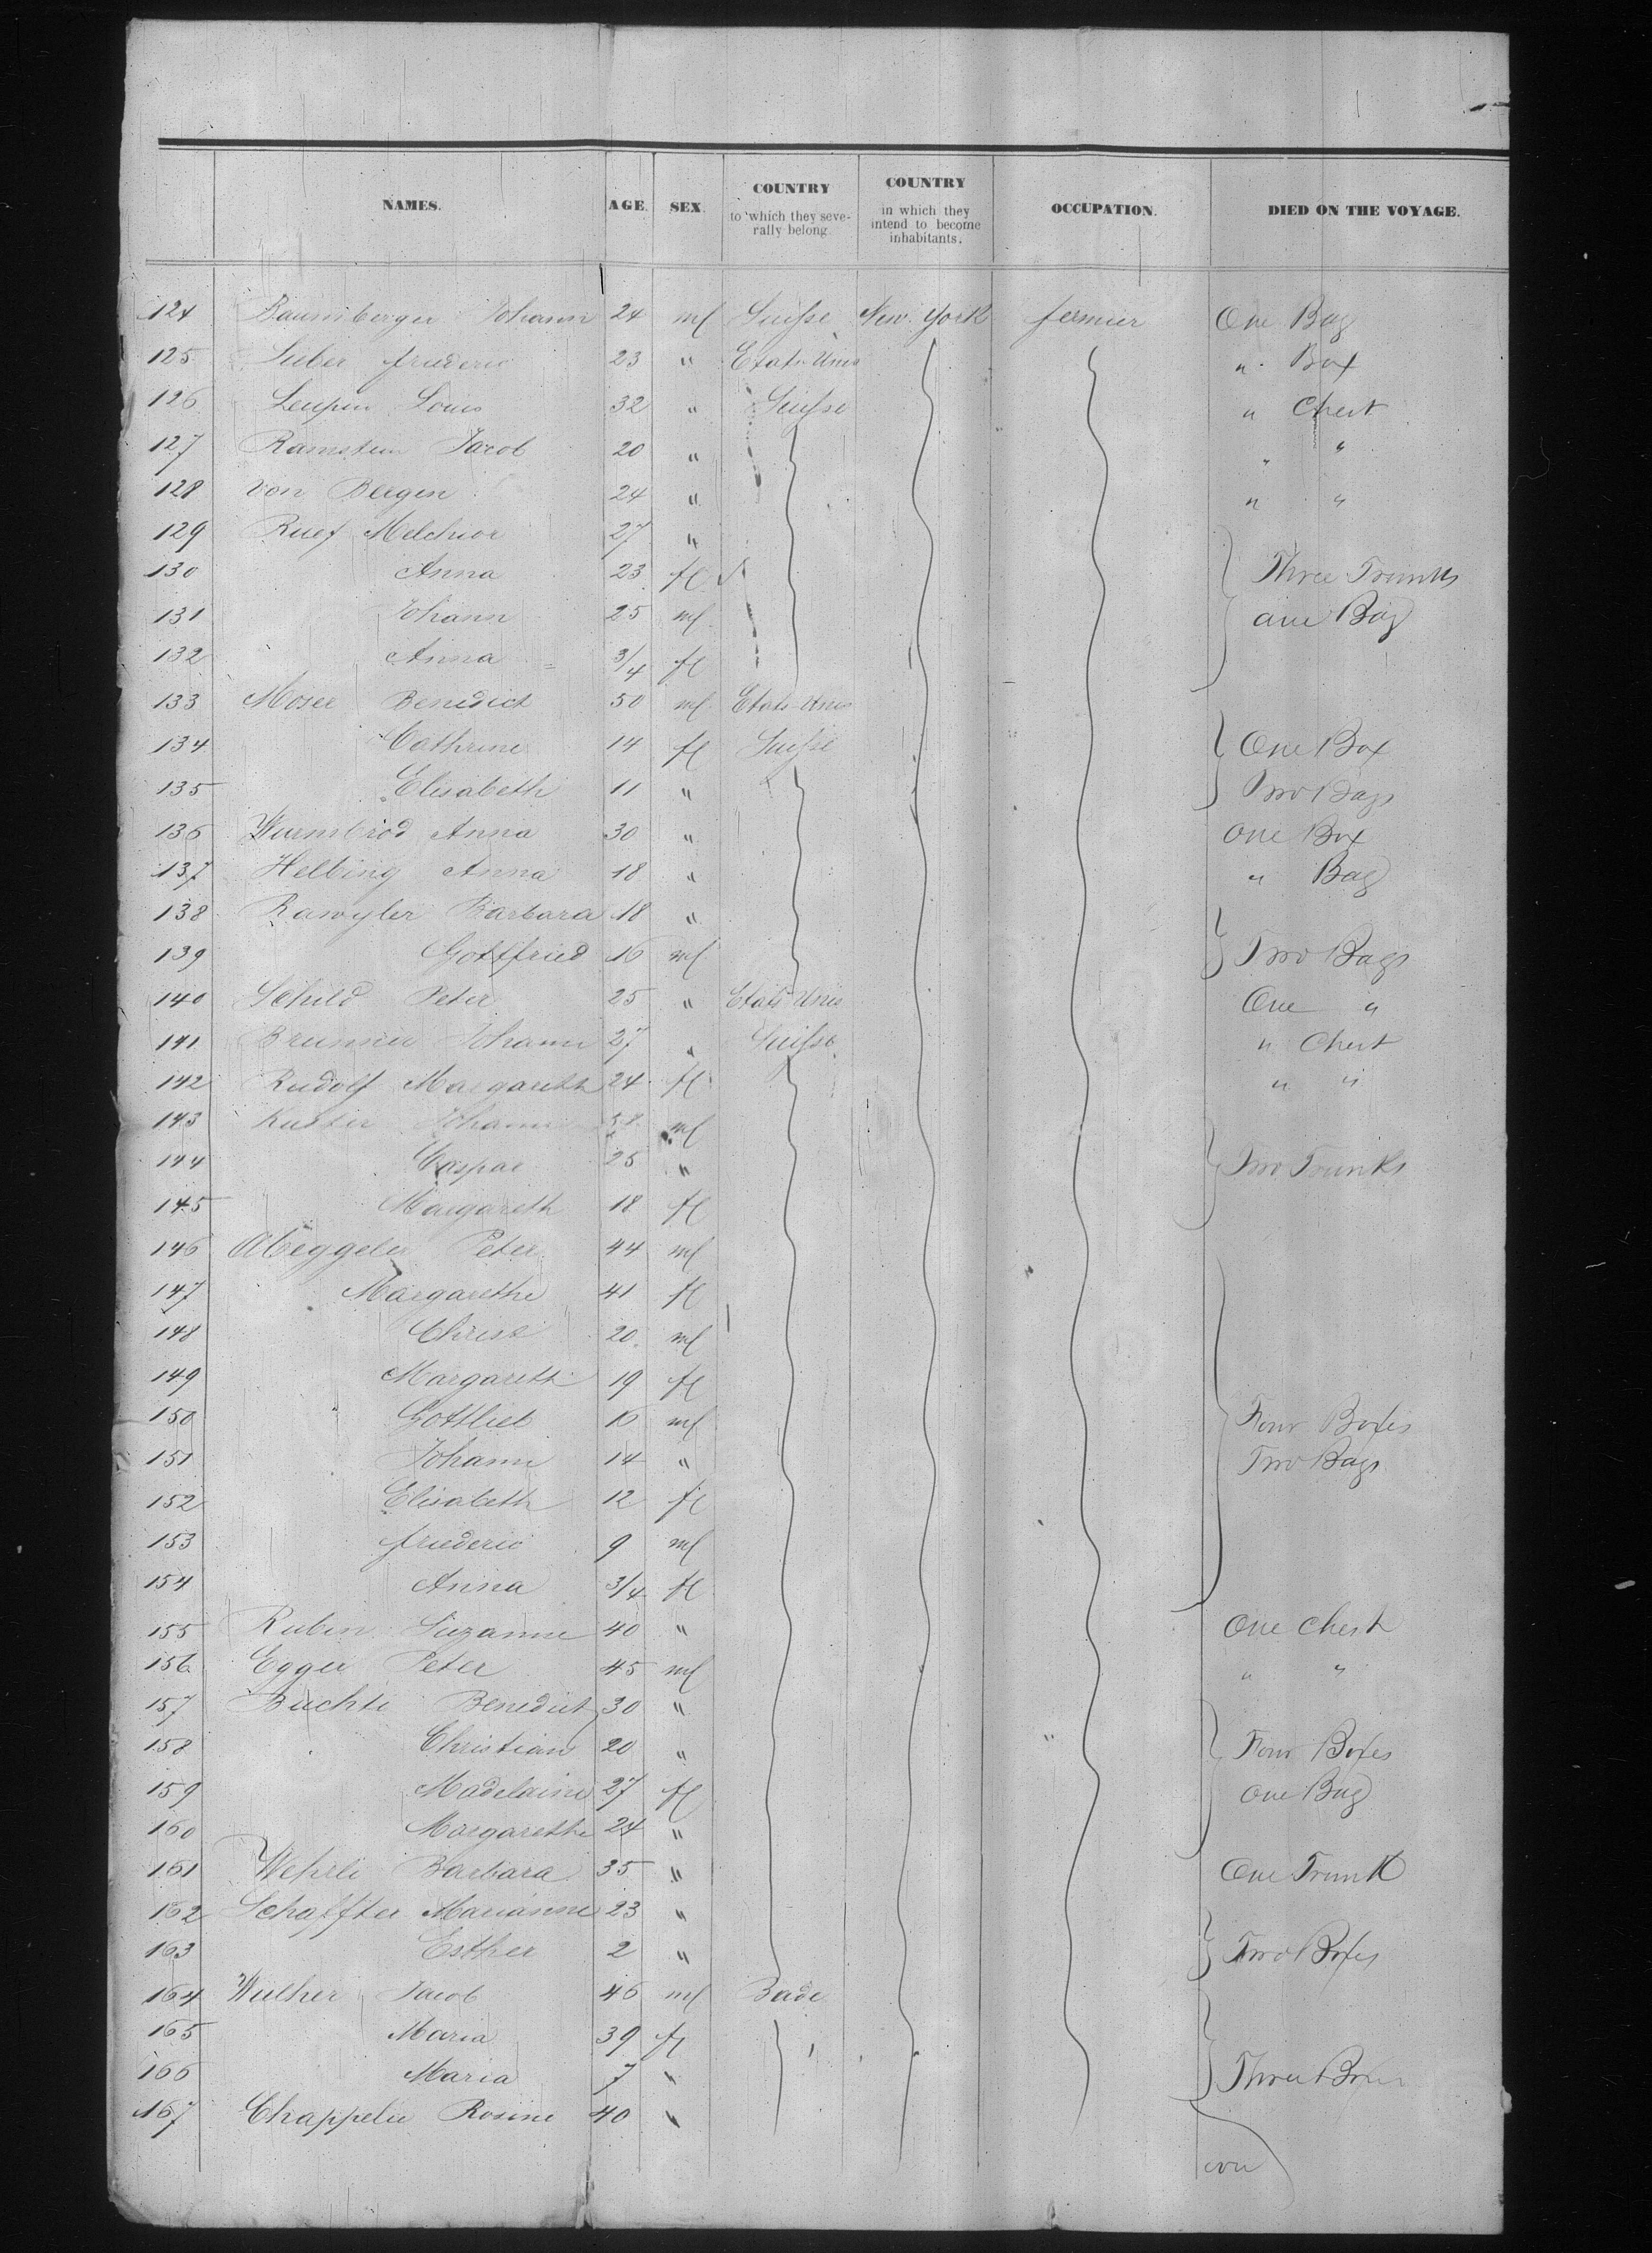 NAMES. AGE. SEX. COUNTRY to which they severally belong. COUNTRY in which they intend to become inhabitants. OCCUPATION. DIED ON THE VOYAGE.
124 Baumberger Johann 24 ml Suisse New York fermier One Bag
125 Sieber friederic 23 " Etats-Unis " Box
126 Leupin Louis 32 " Suisse " Chest
127 Ramstein Jacob 20 " " "
128 von Bergen 24 " " "
129 Ruef Melchior 27 "
130 Anna 23 fl Three Trunks
131 Johann 25 ml one Bag
132 Anna 3/4 fl
133 Moser Benedict 50 ml Etats-Unis
134 Cathrine 14 fl Suisse One Box
135 Elisabeth 11 " Two Bags
136 Wurmbrod Anna 30 " One Box
137 Helbing Anna 18 " " Bag
138 Rawyler Barbara 18 "
139 Gottfried 16 ml Two Bags
140 Schild Peter 25 " Etats Unis One "
141 Brunner Johann 27 " Suisse " Chest
142 Rudolf Margareth 24 fl " "
143 Kuster Johann ml
144 Caspar 25 " Two Trunks
145 Margareth 18 fl
146 Abeggeler Peter 44 ml
147 Margarethe 41 fl
148 Christ 20 ml
149 Margareth 19 fl
150 Gottlieb 16 ml Four Boxes
151 Johann 14 " Two Bags
152 Elisabeth 12 fl
153 friederic 9 ml
154 Anna 3/4 fl
155 Rubin Suzanne 40 " One Chest
156 Egger Peter 45 ml " "
157 Buchti Benedict 30 "
158 Christian 20 " Four Boxes
159 Madelaine 27 fl One Bag
160 Margarethe 24 "
161 Wehrli Barbara 35 " One Trunk
162 Schaffter Marianne 23 "
163 Esther 2 " Two Boxes
164 Wulher Jacob 46 ml Bade
165 Maria 39 fl
166 Maria 7 " Three Boxes
167 Chappelie Rosine 40 "